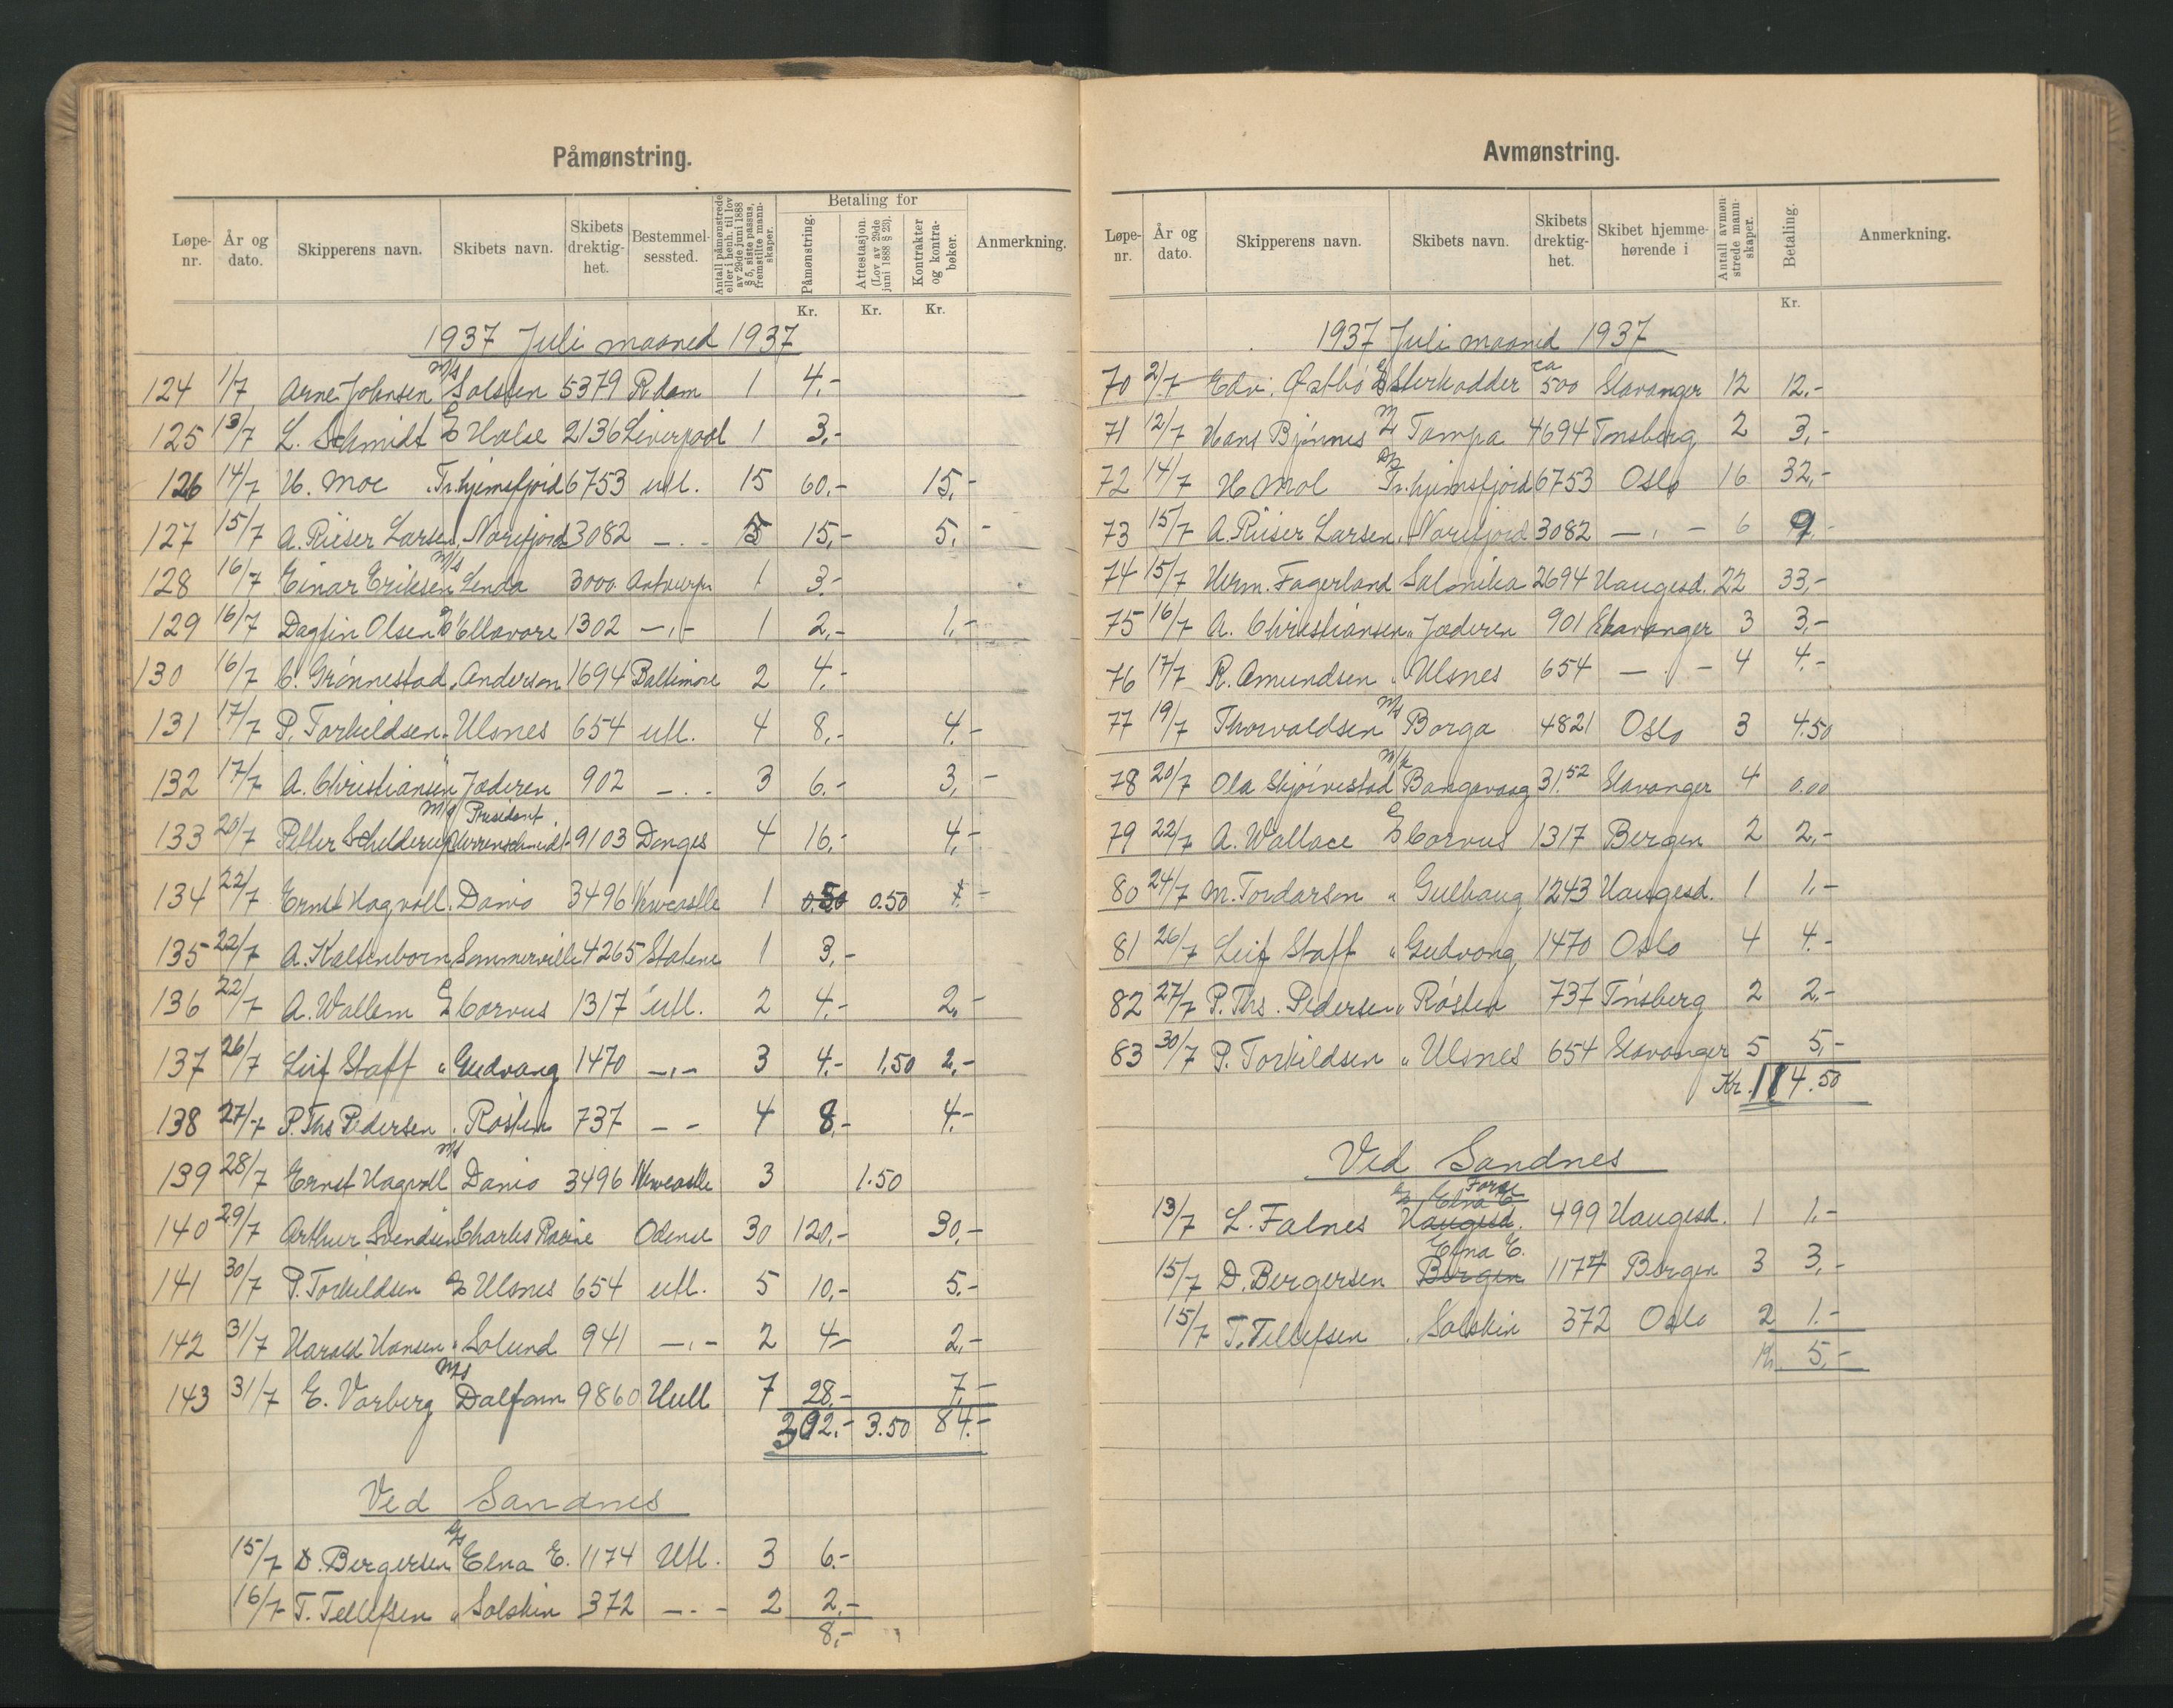 Påmønstring.
Løpe-nr. År og dato. Skipperens navn. Skibets navn. Skibets drektig-het. Bestemmel-sessted. Antall påmønstrede eller i henh. til lov av 29de juni 1888 § 5, siste passus, fremstilte mann-skaper. Betaling for Påmønstring. Attestasjon. (Lov av 29de juni 1888 § 23). Kontrakter og kontra-bøker. Anmerkning.
Kr. Kr. Kr.
1937 Juli maaned 1937
124 1/7 Arne Johnsen M/s Solsten 5379 R.dam 1 4.-
125 13/7 L. Schmidt Halse 2136 Liverpool 1 3,-
126 14/7 H. Moe Tr.hjemsfjord 6753 utl. 15 60.- 15.-
127 15/7 A. Riiser Larsen Norefjord 3082 -"- 5 15,- 5.-
128 16/7 Einar Eriksen M/s Lenda 3000 Antwerpn 1 3.-
129 16/7 Dagfin Olsen Ellavore 1302 -"- 1 2.- 1.-
130 16/7 C. Grønnestad " Anderson 1694 Baltimore 2 4.-
131 17/7 P. Torkildsen " Ulsnes 654 utl. 4 8.- 4.-
132 17/7 A. Christiansen " Jæderen 902 -"- 3 6.- 3.-
133 20/7 Petter Schelderup M/s President Herrenschmidt 9103 Donges 4 16.- 4.-
134 22/7 Ernst Hagvoll " Davio 3496 Newcastle 1 0.50 0.50
135 22/7 A. Kaltenborn Sommerville 4265 Statene 1 3.-
136 22/7 A. Wallem Corvus 1317 utl. 2 4.- 2.-
137 26/7 Leif Staff " Gudvang 1470 -"- 3 4.- 1.50 2.-
138 27/7 P. Ths Pedersen " Røsten 737 - - 4 8.- 4.-
139 28/7 Ernst Hagvoll M/s Davio 3496 Newcastle 3 1.50
140 29/7 Arthur Svendsen Charles Racine Odense 30 120.- 30.-
141 30/7 P. Torkildsen Ulsnes 654 utl. 5 10.- 5.-
142 31/7 Harald Hansen " Solund 941 -"- 2 4- 2.-
143 31/7 E. Vorberg M/s Dalfonn 9860 Hull 7 28.- 7.-
302.- 3.50 84.-
Ved Sandnes
15/7 D. Bergersen Elna E. 1174 Utl. 3 6.-
16/7 T. Tellefsen " Solskin 372 -"- 2 2.-
8,-
Avmønstring.
Løpe-nr. År og dato. Skipperens navn. Skibets navn. Skibets drektig-het. Skibet hjemme-hørende i Antall avmøn-strede mann-skaper. Betaling. Anmerkning.
Kr.
1937 Juli maaned 1937
70 2/7 Edv. Østbø Sterkodder ca 500 Stavanger 12 12.-
71 12/7 Hans Bjønnes Tampa 4694 Tønsberg 2 3,-
72 14/7 H Mol Tr.hjemsfjord 6753 Oslo 16 32,-
73 15/7 A. Riiser Larsen " Norefjord 3082 -"- 6 9.-
74 15/7 Herm. Fagerland Salonika 2694 Haugesd. 22 33,-
75 16/7 A. Christiansen " Jæderen 901 Stavanger 3 3.-
76 17/7 R. Amundsen " Ulsnes 654 -"- 4 4.-
77 19/7 Thorvaldsen M/s Borga 4821 Oslo 3 4.50
78 20/7 Ola Skjørvestad M/k Bangavaag 31.52 Stavanger 4 0.00
79 22/7 A. Wallace Corvus 1317 Bergen 2 2,-
80 24/7 M. Tordarson " Gulhaug 1243 Haugesd. 1 1.-
81 26/7 Leif Staff " Gudvang 1470 Oslo 4 4.-
82 27/7 P. Ths. Pedersen " Røsten 737 Tønsberg 2 2.-
83 30/7 P. Torkildsen " Ulsnes 654 Stavanger 5 5,-
Kr. 114.50
Ved Sandnes
13/7 L. Falnes Haugesd. 499 Haugesd. 1 1.-
15/7 D. Bergersen Bergen Elna E. 1174 Bergen 3 3,-
15/7 T. Tellefsen " Solskin 372 Oslo 2 1.-
Kr. 5,-